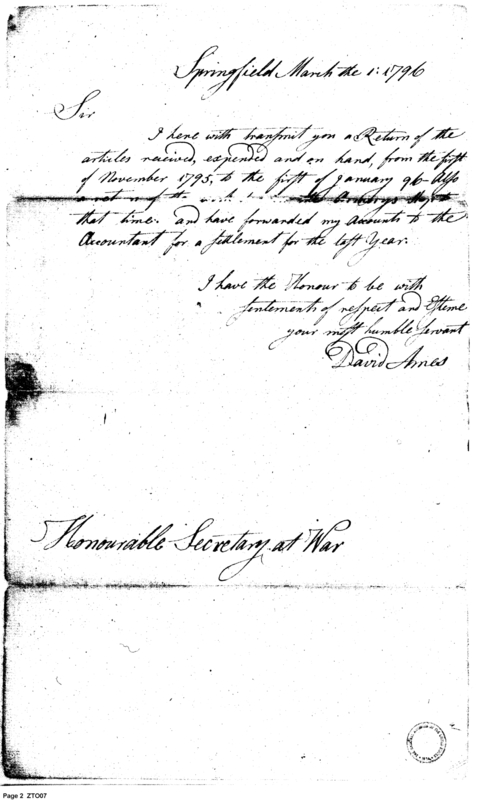 Springfield March the 1: 1796
Sir
I here with transmit you a Return of the
articles received, expended and on hand, from the first
of November 1795, to the first of January 96- Also
a return of the work
that time. and have forwarded my Accounts to the
Accountant for a settlement for the last Year.
I have the Honour to be with
sentements of respect and Esteme
your most humble servant
David Ames
Honourable Secretary at War
Page 2 ZTO07